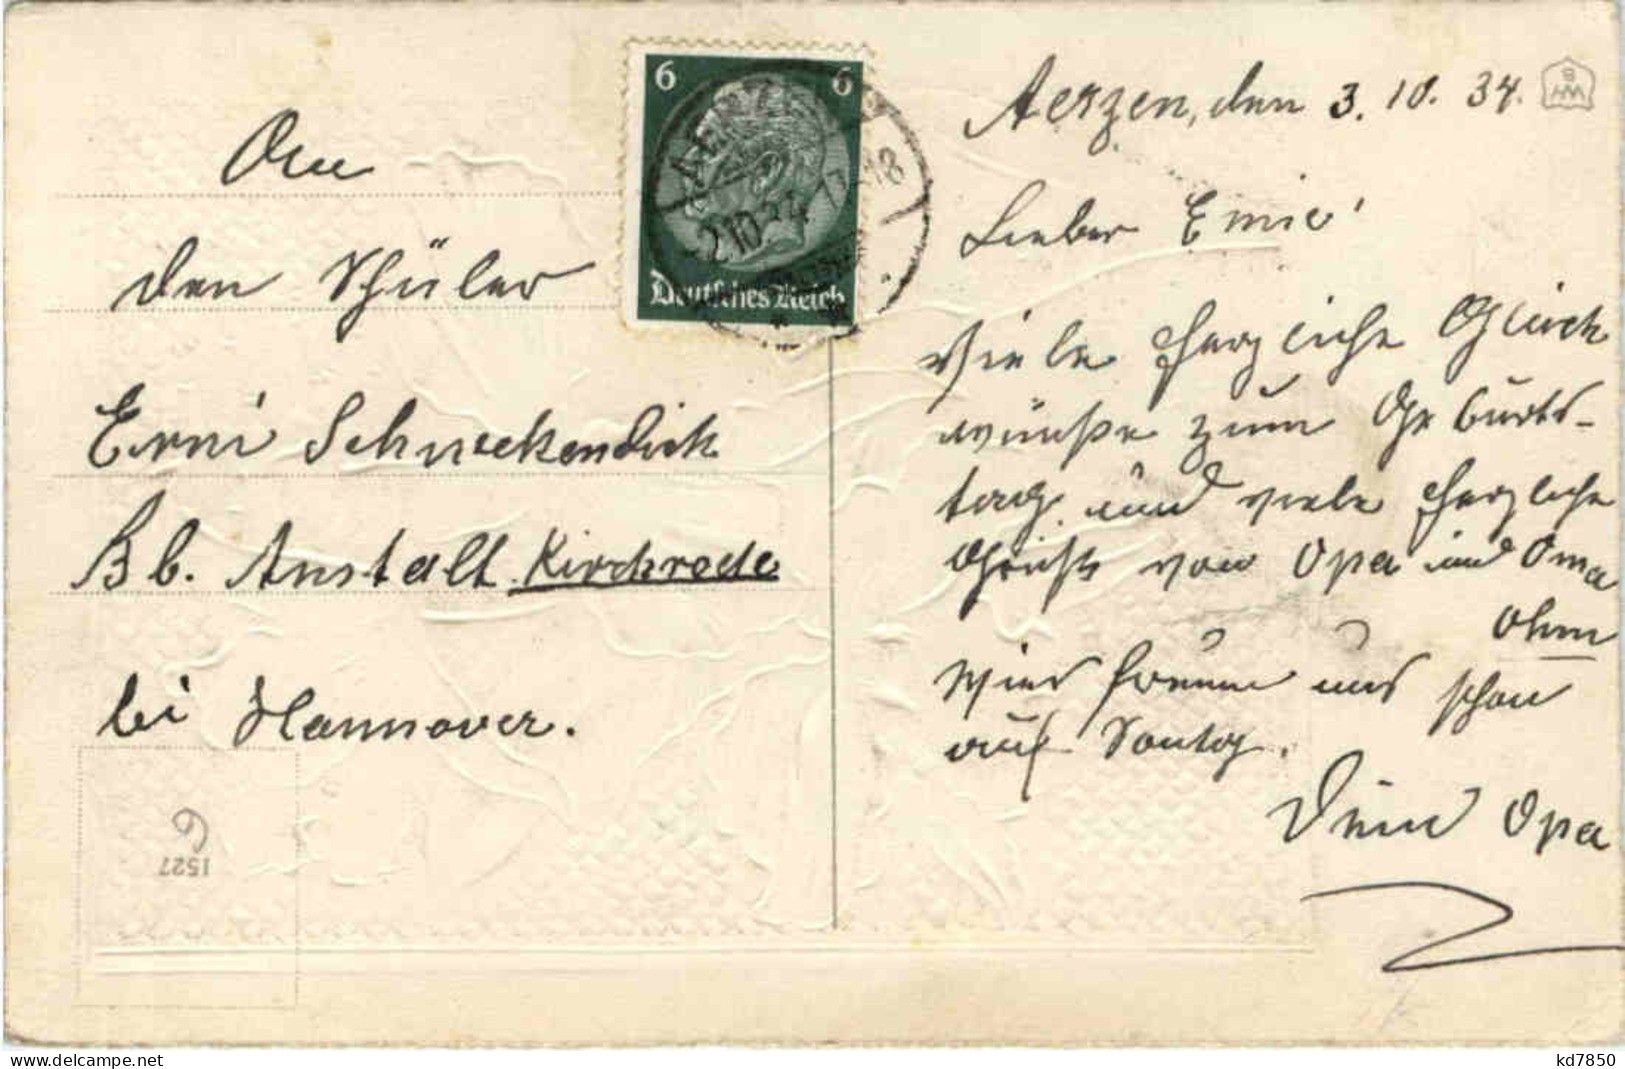 An
den Schüler
Erni Schneekendick
Bb. Anstalt Kirchrode
bei Hannover.
6 6
Deutsches Reich
AERZEN
2.10.34 17-18
1527
Aerzen, den 3. 10. 34.
Lieber Erni!
Viele herzliche Glück
wünsche zum Geburts-
tag und viele herzliche
Grüße von Opa und Oma
Ohm
Wir freuen uns schon
auf Sontag.
Dein Opa
kd7850